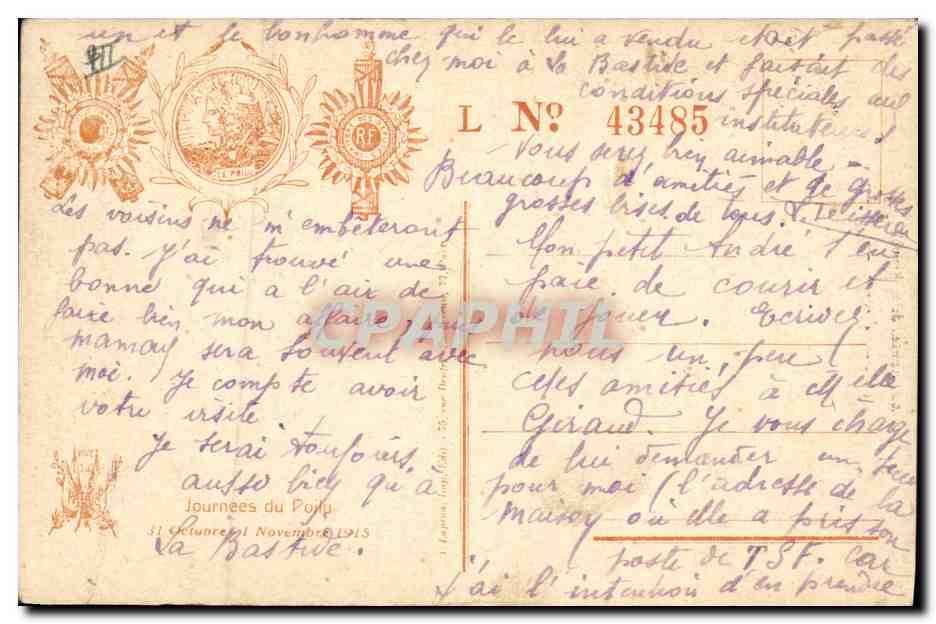 III
un et le bonhomme qui le lui a vendu était passé
chez moi à La Bastide et faisait des
conditions spéciales aux
instituteurs
L No. 43485
Vous serez bien aimable -
Beaucoup d'amitiés et de grosses
grosses bises de tous.
LE POILU
RF
Les voisins ne m'embêteront
pas. J'ai trouvé une
bonne qui a l'air de
faire bien mon affaire, puis
maman sera souvent avec
moi. Je compte avoir
votre visite
Je serai toujours
aussi bien qu'à
La Bastide.
Journées du Poilu
31 Octobre, 1 Novembre 1915
Mon petit André s'en
paie de courir et
de jouer. Ecrivez
nous un peu
des amitiés à Melle
Giraud. Je vous charge
de lui demander un
pour moi (l'adresse de la
maison où elle a pris son
poste de TSF. car
j'ai l'intention d'en prendre
CPAPHIL